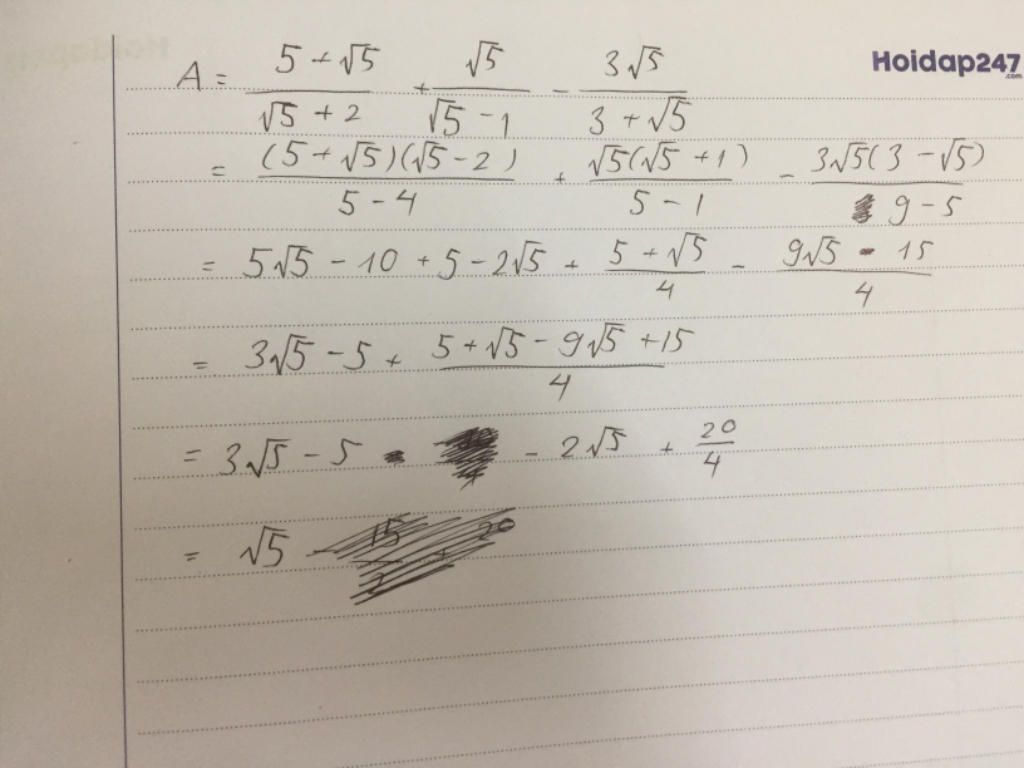 Hoidap247.com
A = \frac{5 + \sqrt{5}}{\sqrt{5} + 2} + \frac{\sqrt{5}}{\sqrt{5} - 1} - \frac{3\sqrt{5}}{3 + \sqrt{5}}
= \frac{(5 + \sqrt{5})(\sqrt{5} - 2)}{5 - 4} + \frac{\sqrt{5}(\sqrt{5} + 1)}{5 - 1} - \frac{3\sqrt{5}(3 - \sqrt{5})}{9 - 5}
= 5\sqrt{5} - 10 + 5 - 2\sqrt{5} + \frac{5 + \sqrt{5}}{4} - \frac{9\sqrt{5} - 15}{4}
= 3\sqrt{5} - 5 + \frac{5 + \sqrt{5} - 9\sqrt{5} + 15}{4}
= 3\sqrt{5} - 5 - 2\sqrt{5} + \frac{20}{4}
= \sqrt{5}